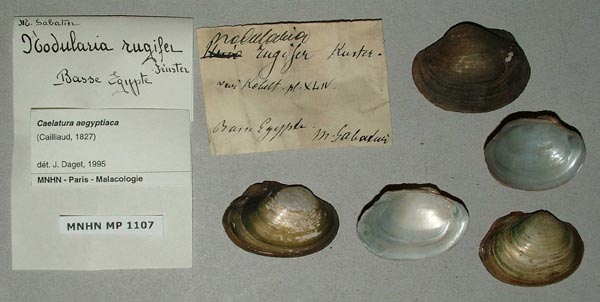 M. Sabatier
Nodularia rugifer
Küster
Basse Egypte
Caelatura aegyptiaca
(Cailliaud, 1827)
dét. J. Daget, 1995
MNHN - Paris - Malacologie
MNHN MP 1107
Nodularia
Unio rugifer Kuster.
Kobelt. pl. XLIV.
Basse Egypte. M. Sabatier